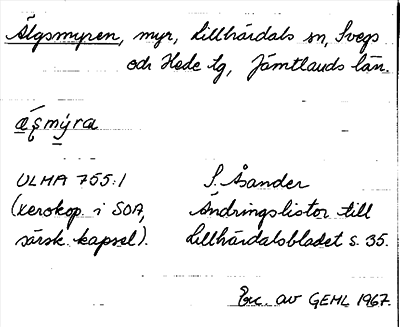 Älgsmyren, myr, Lillhärdals sn, Svegs
och Hede tg, Jämtlands län.
æļsmýra
ULMA 755:1 S. Åsander
(xerokop. i SOA, Ändringslistor till
särsk. kapsel). Lillhärdalsbladet s. 35.
Exc. av GEHL 1967.